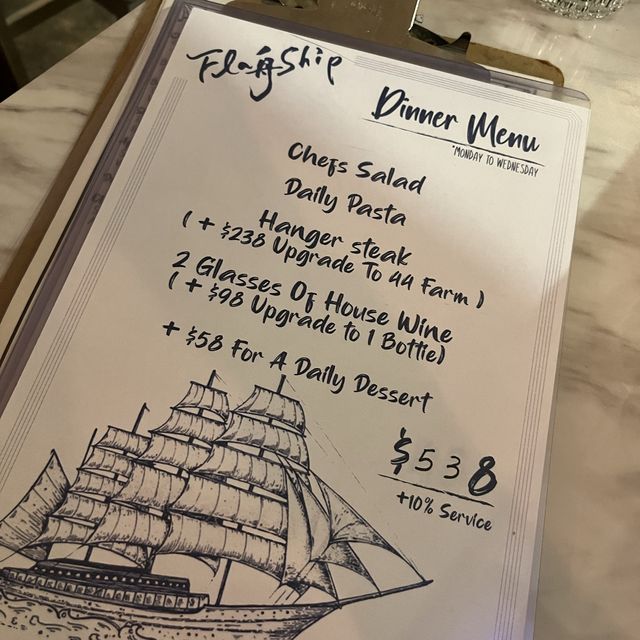 Flagship
Dinner Menu
*MONDAY TO WEDNESDAY
Chefs Salad
Daily Pasta
Hanger steak
( + $238 Upgrade To 44 Farm )
2 Glasses Of House Wine
( + $98 Upgrade to 1 Bottle)
+ $58 For A Daily Dessert
$538
+10% Service